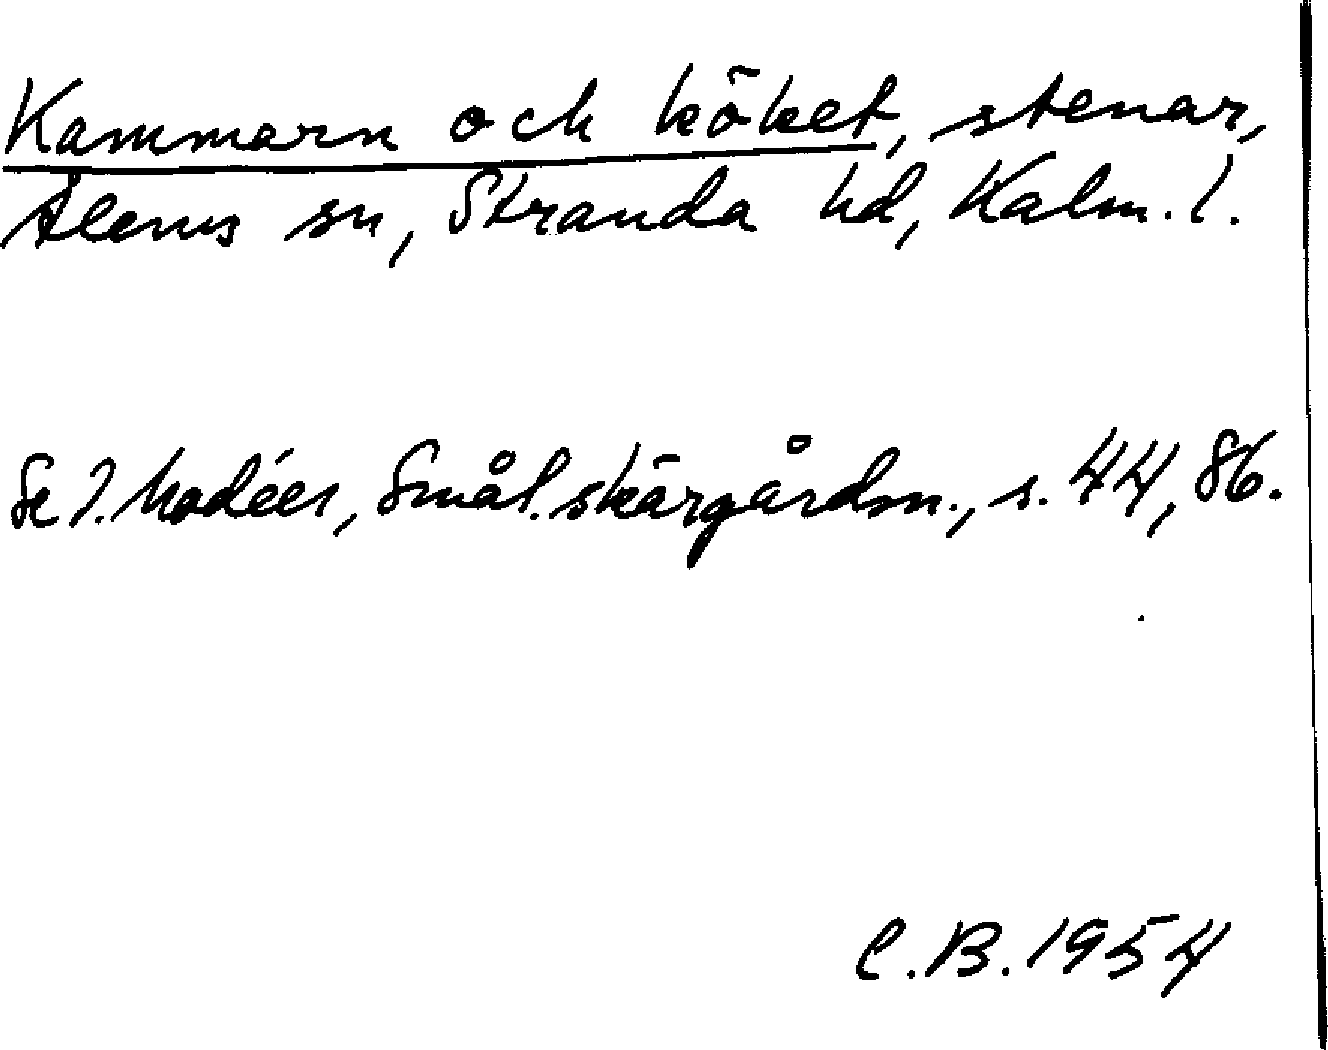 Kammarn och köket, stenar,
Ålems sn, Stranda hd, Kalm. l.
Se I. Modéer, Smål. skärgårdsn., s. 44, 86.
C.B. 1954